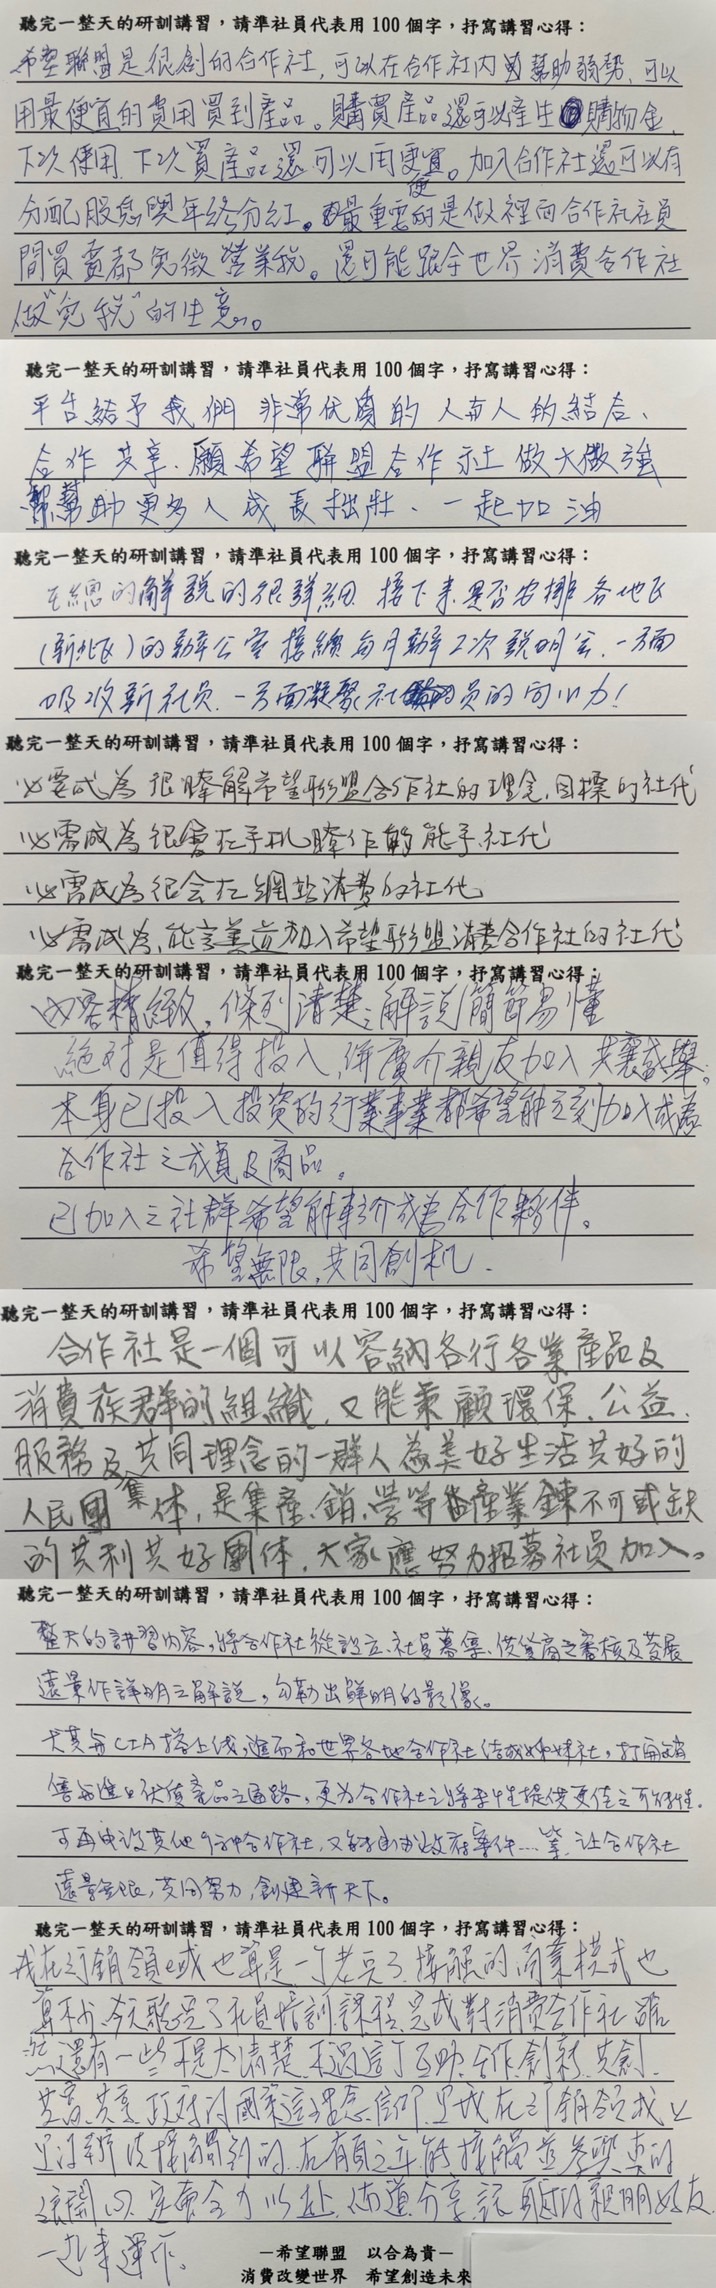 聽完一整天的研訓講習，請準社員代表用 100 個字，抒寫講習心得：
希望聯盟是很創的合作社,可以在合作社內 幫助弱勢、可以
用最便宜的費用買到產品。購買產品還可以產生 購物金、
下次使用 下次買產品還可以用更便宜。加入合作社還可以有
分配股息與年終分紅。最重要的是做裡面合作社社員
間買賣都免徵營業稅。還可能跟全世界消費合作社
做"免稅"的生意。
聽完一整天的研訓講習，請準社員代表用 100 個字，抒寫講習心得：
平台給予我們 非常優質的 人與人的結合、
合作 共享.願希望聯盟合作社做大做強
幫助更多人成長拙壯、一起加油
聽完一整天的研訓講習，請準社員代表用 100 個字，抒寫講習心得：
王總的解說的很詳細 接下來是否安排各地區
(新北區)的辦公室接續每月辦2次說明会.一方面
吸收新社员.一方面凝聚社 员的向心力!
聽完一整天的研訓講習，請準社員代表用 100 個字，抒寫講習心得：
必要成為 很瞭解希望聯盟合作社的理念,目標的社代
必需成為很會在手机 作的能手.社代
必需成為很会在網站消費的社代
必需成為,能言善道加入希望聯盟消費合作社的社代
聽完一整天的研訓講習，請準社員代表用 100 個字，抒寫講習心得：
內容精緻,條列清楚;解說簡節易懂
絕对是值得投入,併廣介親友加入共襄盛舉;
本身已投入投资的行業事業都希望能立刻加入成為
合作社之成員及商品。
已加入之社群希望能轉介成為合作夥伴。
希望無限,共同創机.
聽完一整天的研訓講習，請準社員代表用 100 個字，抒寫講習心得：
合作社是一個可以容納各行各業產品及
消費族群的組織,又能兼顧環保.公益.
服務及共同理念的一群人為美好生活共好的
人民團集体,是集產.銷.學等 產業鍊不可或缺
的共利共好團体.大家應努力招募社员加入。
聽完一整天的研訓講習，請準社員代表用 100 個字，抒寫講習心得：
整天的講習內容,將合作社從設立、社員募集、供貨商之審核及發展
遠景作詳明之解說,勾勒出鮮明的影像。
尤其与CIA搭上线,進而和世界各地合作社結成姊妹社,打開銷
售与進口優價產品之通路,更為合作社之將來性提供更佳之可能性.
可再申設其他 合作社,又 政府事件…等,让合作社
遠景無限,共同努力,創建新天下。
聽完一整天的研訓講習，請準社員代表用 100 個字，抒寫講習心得：
我在行銷領域也算是一个老兵了.接触的商業模式也
算不少.今天聽完了社員培訓課程.完成對消費合作社雖
然還有一些不是太清楚.不過這个互助.合作.創新.共創.
共富.共享.政府 國家這 念.信仰.是我在行銷領域上
是沒辦法接觸到的.在有生之年能接觸並參與真的
很開心.定會全力以赴.佈道分享.讓 親朋好友.
一起來運作。
－希望聯盟　以合為貴－
消費改變世界　希望創造未來